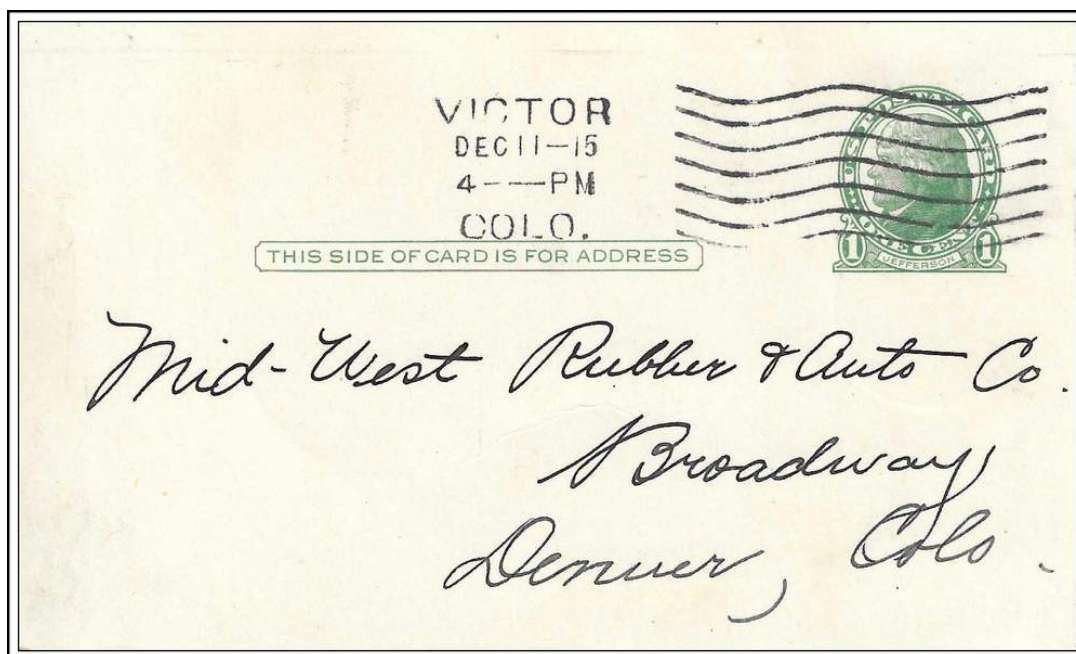 VICTOR
DEC 11-15
4--PM
COLO.
THIS SIDE OF CARD IS FOR ADDRESS
U.S. POSTAL CARD
ONE CENT
1 JEFFERSON 1
Mid-West Rubber & Auto Co.
Broadway
Denver, Colo.